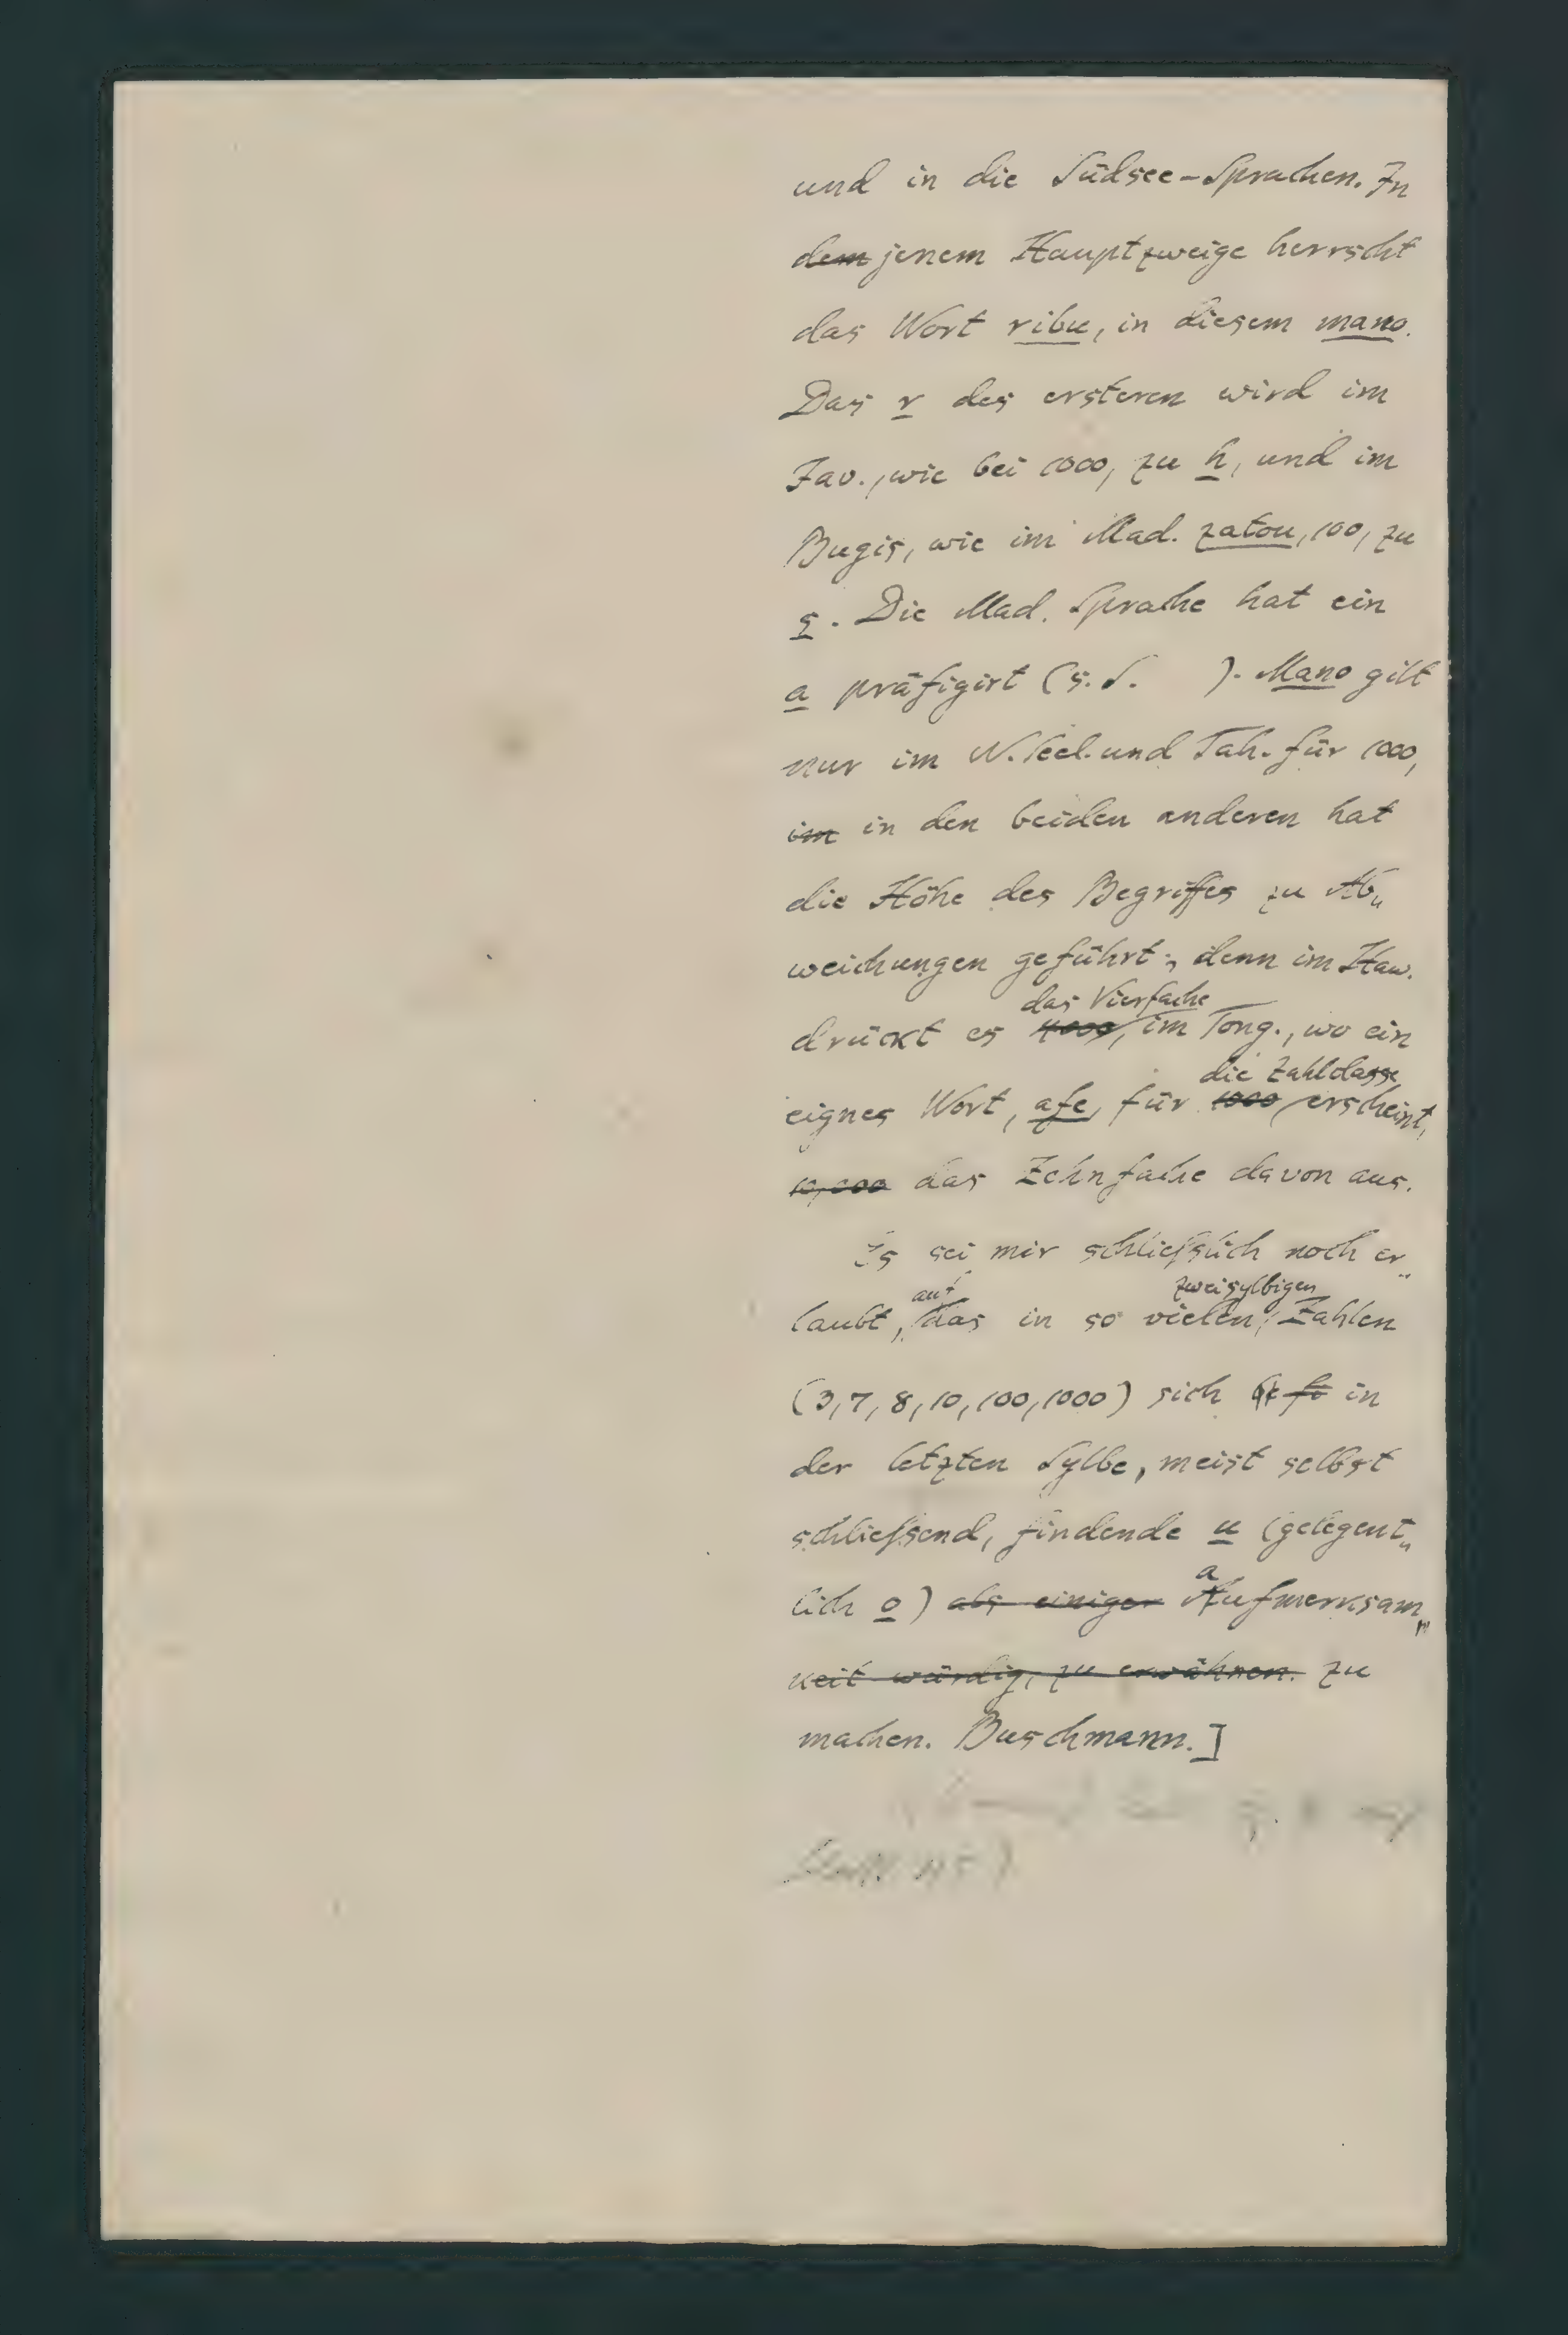 und in die Südsee-Sprachen. In
dem jenem Hauptzweige herrscht
das Wort ribu, in diesem mano.
Das r des ersteren wird im
Jav., wie bei 1000, zu h, und im
Bugis, wie im Mad. zatou, 100, zu
s. Die Mad. Sprache hat ein
a präfigirt (s. S. ). Mano gilt
nur im N. Seel. und Tah. für 1000,
im in den beiden anderen hat
die Höhe des Begriffes zu Ab„
weichungen geführt; denn im Haw.
das Vierfache
drückt es 4000, im Tong., wo ein
die Zahlclasse
eignes Wort, afe, für 1000 erscheint,
10,000 das Zehnfache davon aus.
Es sei mir schließlich noch er„
auf zweisylbigen
laubt, das in so vielen Zahlen
(3, 7, 8, 10, 100, 1000) sich in
der letzten Sylbe, meist selbst
schließend, findende u (gelegent„
lich o) als einiger Aufmerksam„
a
keit würdig, zu erwähnen. zu
machen. Buschmann.]